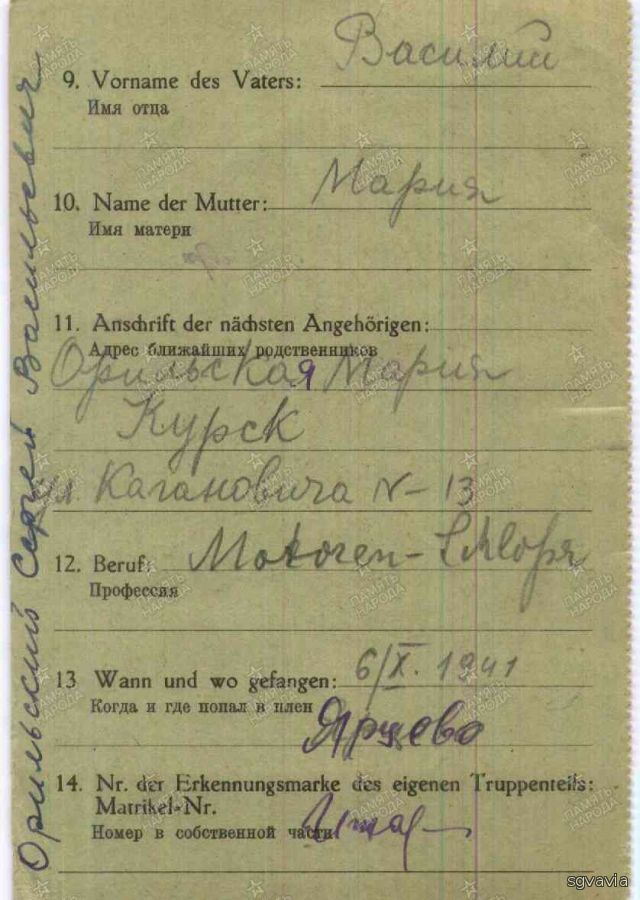 Орильский Сергей Васильевич
9. Vorname des Vaters: Василий
Имя отца
10. Name der Mutter: Мария
Имя матери
11. Anschrift der nächsten Angehörigen:
Адрес ближайших родственников
Орильская Мария
Курск
ул. Кагановича N-13
12. Beruf:
Профессия
13 Wann und wo gefangen: 6/X. 1941
Когда и где попал в плен Ярцево
14. Nr. der Erkennungsmarke des eigenen Truppenteils:
Matrikel-Nr.
Номер в собственной части
ПАМЯТЬ НАРОДА
sgvavia